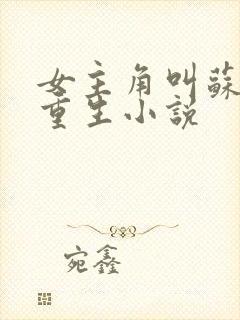 女主角叫蘇
重生小說
宛鑫